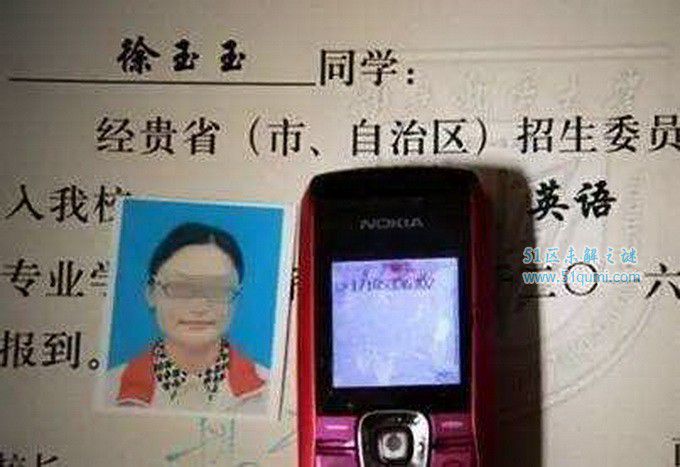 徐玉玉 同学：
经贵省（市、自治区）招生委员
入我校 英语
专业学 二〇一六
报到。
NOKIA
51区未解之谜
www.51qumi.com